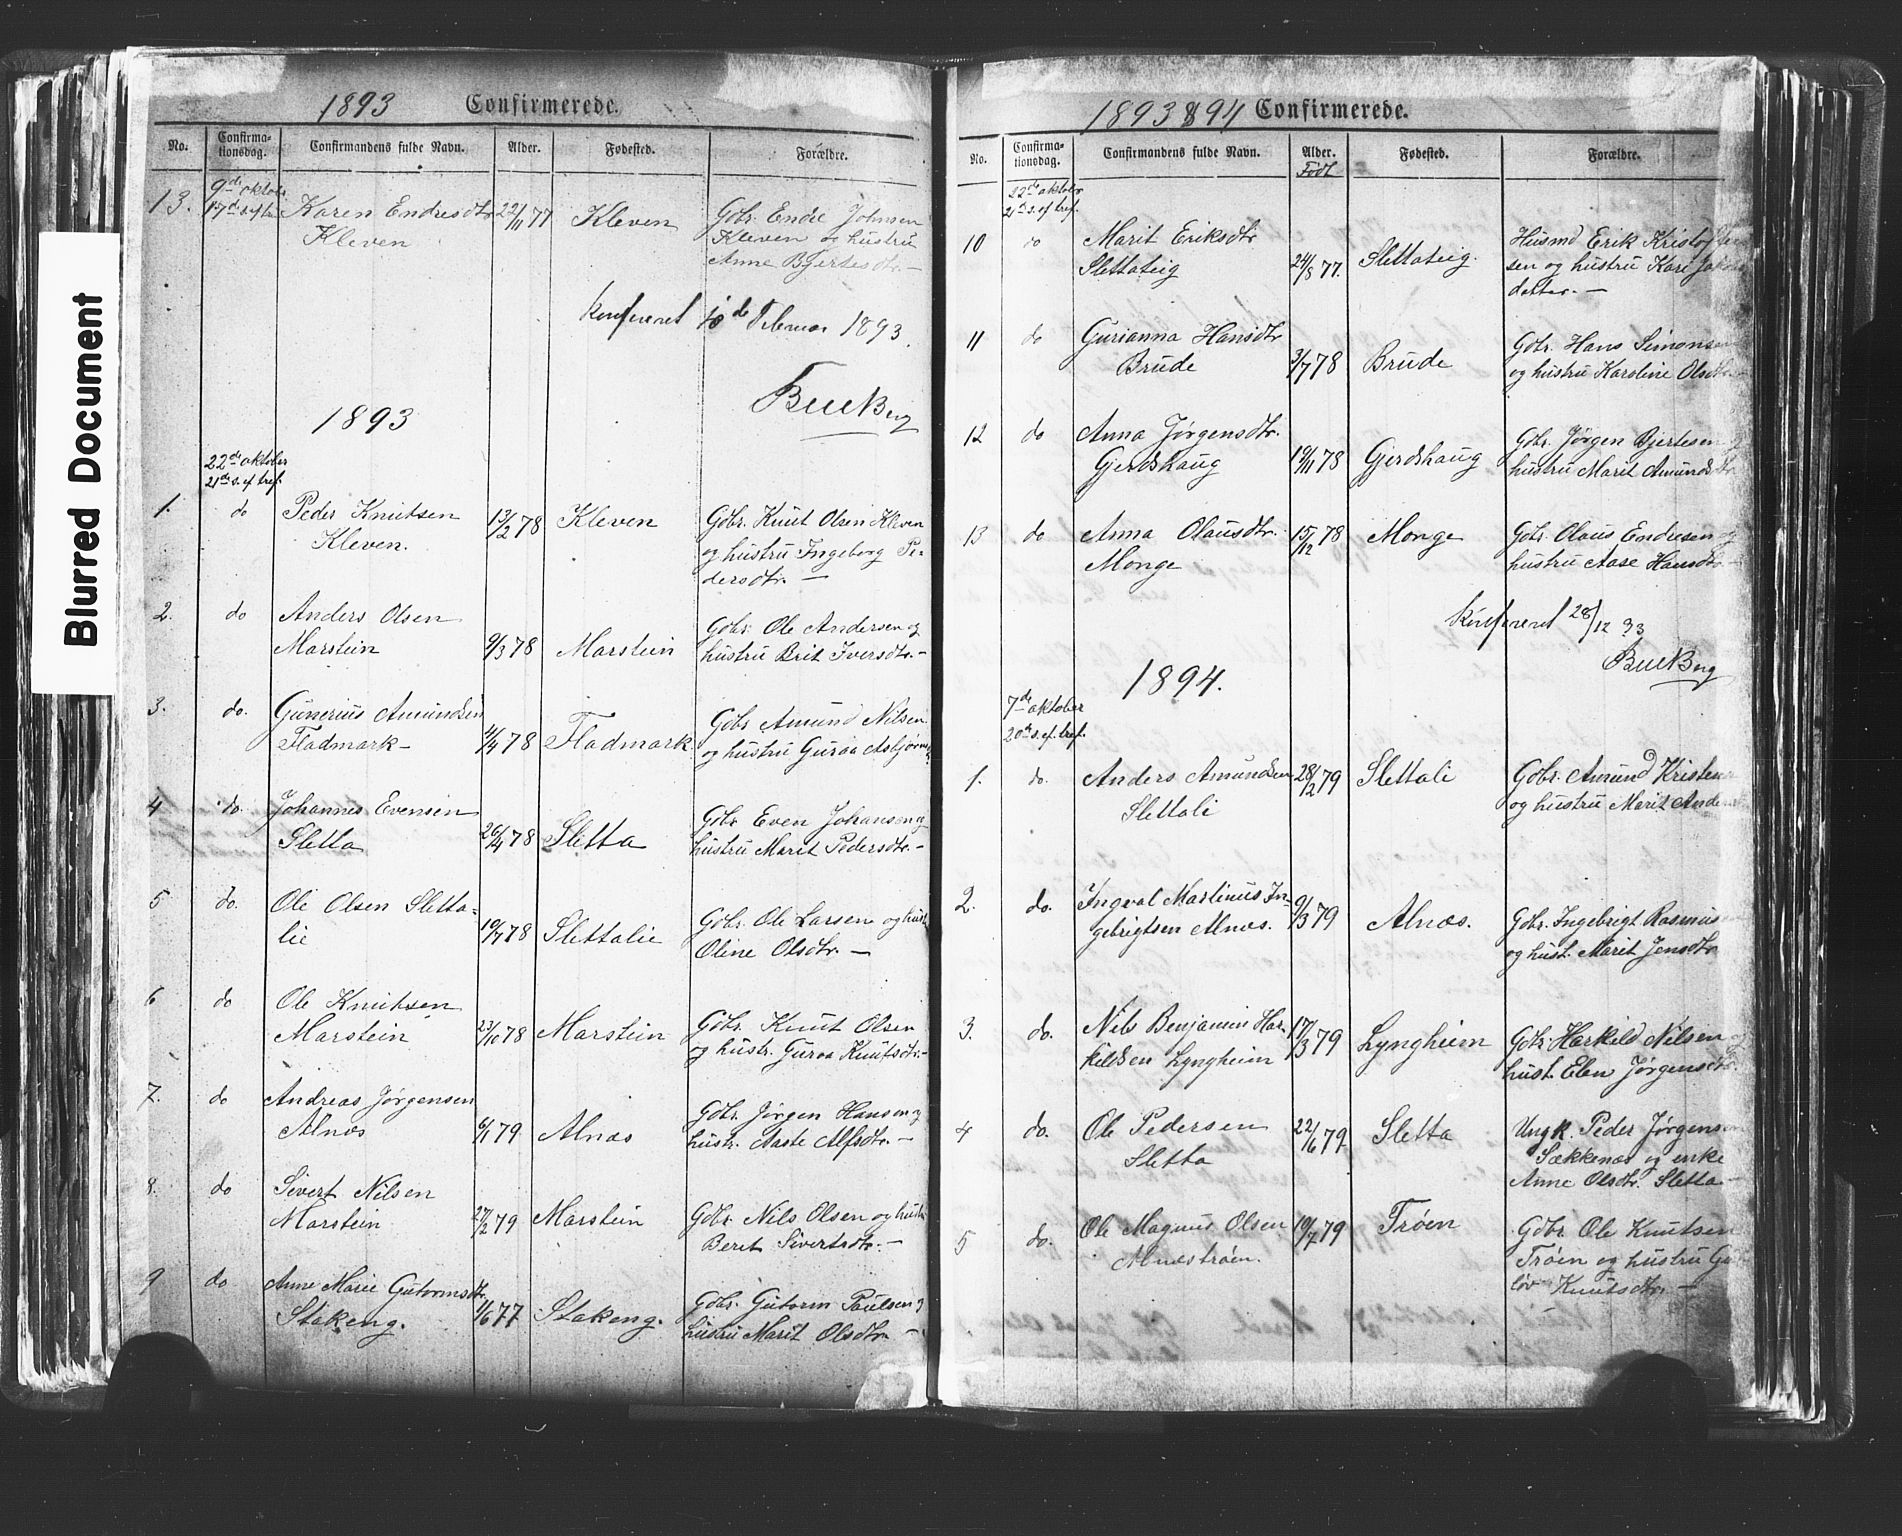 Blurred Document
1893 Confirmerede.
No. Confirma-tionsdag. Confirmandens fulde Navn. Alder. Fødested. Forældre.
13. 9de oktobr 17de s. ef tr. Karen Endresdtr 22/11 77 Kleven Gdbr. Endre Johnsen
Kleven Kleven og hustru
Anne Bjertesdtr. —
Konfereret 18de Februar 1893.
Bull Berg
1893
22de oktober
21de s. ef tref.
1. do Peder Knutsen 13/2 78 Kleven Gdbr. Knut Olsen Kleven
Kleven. og hustru Ingeborg Pe-
dersdtr. —
2. do Anders Olsen Gdbr. Ole Andersen og
Marstein 9/3 78 Marstein hustru Brit Iversdtr. —
3. do. Gunerius Amundsen Gdbr Amund Nilsen
Fladmark — 4/4 78 Fladmark og hustru Guroa Asbjørns
4 do. Johannes Evensen Gdbr. Even Johansen og
Sletta 20/4 78 Sletta hustru Marit Pedersdtr. —
5 do. Ole Olsen Sletta- Gdbr. Ole Larsen og hust
lie 10/7 78 Slettalie Oline Olsdtr. —
6 do Ole Knutsen Gdbr. Knut Olsen
Marstein 23/10 78 Marstein og hustr. Guroa Knutsdtr. —
7. do Andreas Jørgensen Gdbr. Jørgen Hansen og
Alnæs 6/1 79 Alnæs hustr. Aaste Alfsdtr. —
8. do Sivert Nilsen
Marstein 27/2 79 Marstein Gdbr. Nils Olsen og hustr
Beret Sivertsdtr. —
9 do Anne Marie Gutormsdtr.
Stakeng. 1/6 77 Stakeng. Gdbr. Gutorm Paulsen og
hustru Marit Olsdtr. —
1893 & 94 Confirmerede.
No. Confirma-tionsdag. Confirmandens fulde Navn. Alder. Født Fødested. Forældre.
22de oktobr
21de s. ef tref.
10 do Marit Eriksdtr Husmd Erik Kristoffer
Slettateig 24/8 77. Slettateig. sen og hustru Kari Jakobs
datter. —
11 do Gurianna Hansdtr Gdbr. Hans Simonsen
Brude 3/7 78 Brude og hustru Karoline Olsdtr. —
12 do Anna Jørgensdtr. Gdbr. Jørgen Bjertesen og
Gjerdshaug 19/11 78 Gjerdshaug hustru Marit Amundsdtr
13 do Anna Olausdtr. 15/12 78 Monge Gdbr. Olaus Endresen og
Monge hustru Aase Hansdtr. —
Konfereret 28/12 93
Bull Berg
1894.
7de oktober
20de s. ef. tref.
1. do. Anders Amundsen 28/2 79 Slettali Gdbr. Amund Kristens
Slettali og hustru Marit Anders
2. do. Ingval Martinus In- 9/3 79 Alnæs. Gdbr. Ingebrigt Rasmus
gebrigtsen Alnæs. og hust. Marit Jensdtr
3. do. Nils Benjamin Har- 17/3 79 Lyngheim Gdbr. Harkild Nilsen og
kildsen Lyngheim hust. Elen Jørgensdtr.
4 do. Ole Pedersen 22/6 79 Sletta Ungk. Peder Jørgensen
Sletta Sækkenæs og enke
Anne Olsdtr. Sletta —
5 do. Ole Magnus Olsen 19/7 79 Trøen Gdbr. Ole Knutsen
Alnæstrøen. Trøen og hustru Gu
løv Knutsdtr. —